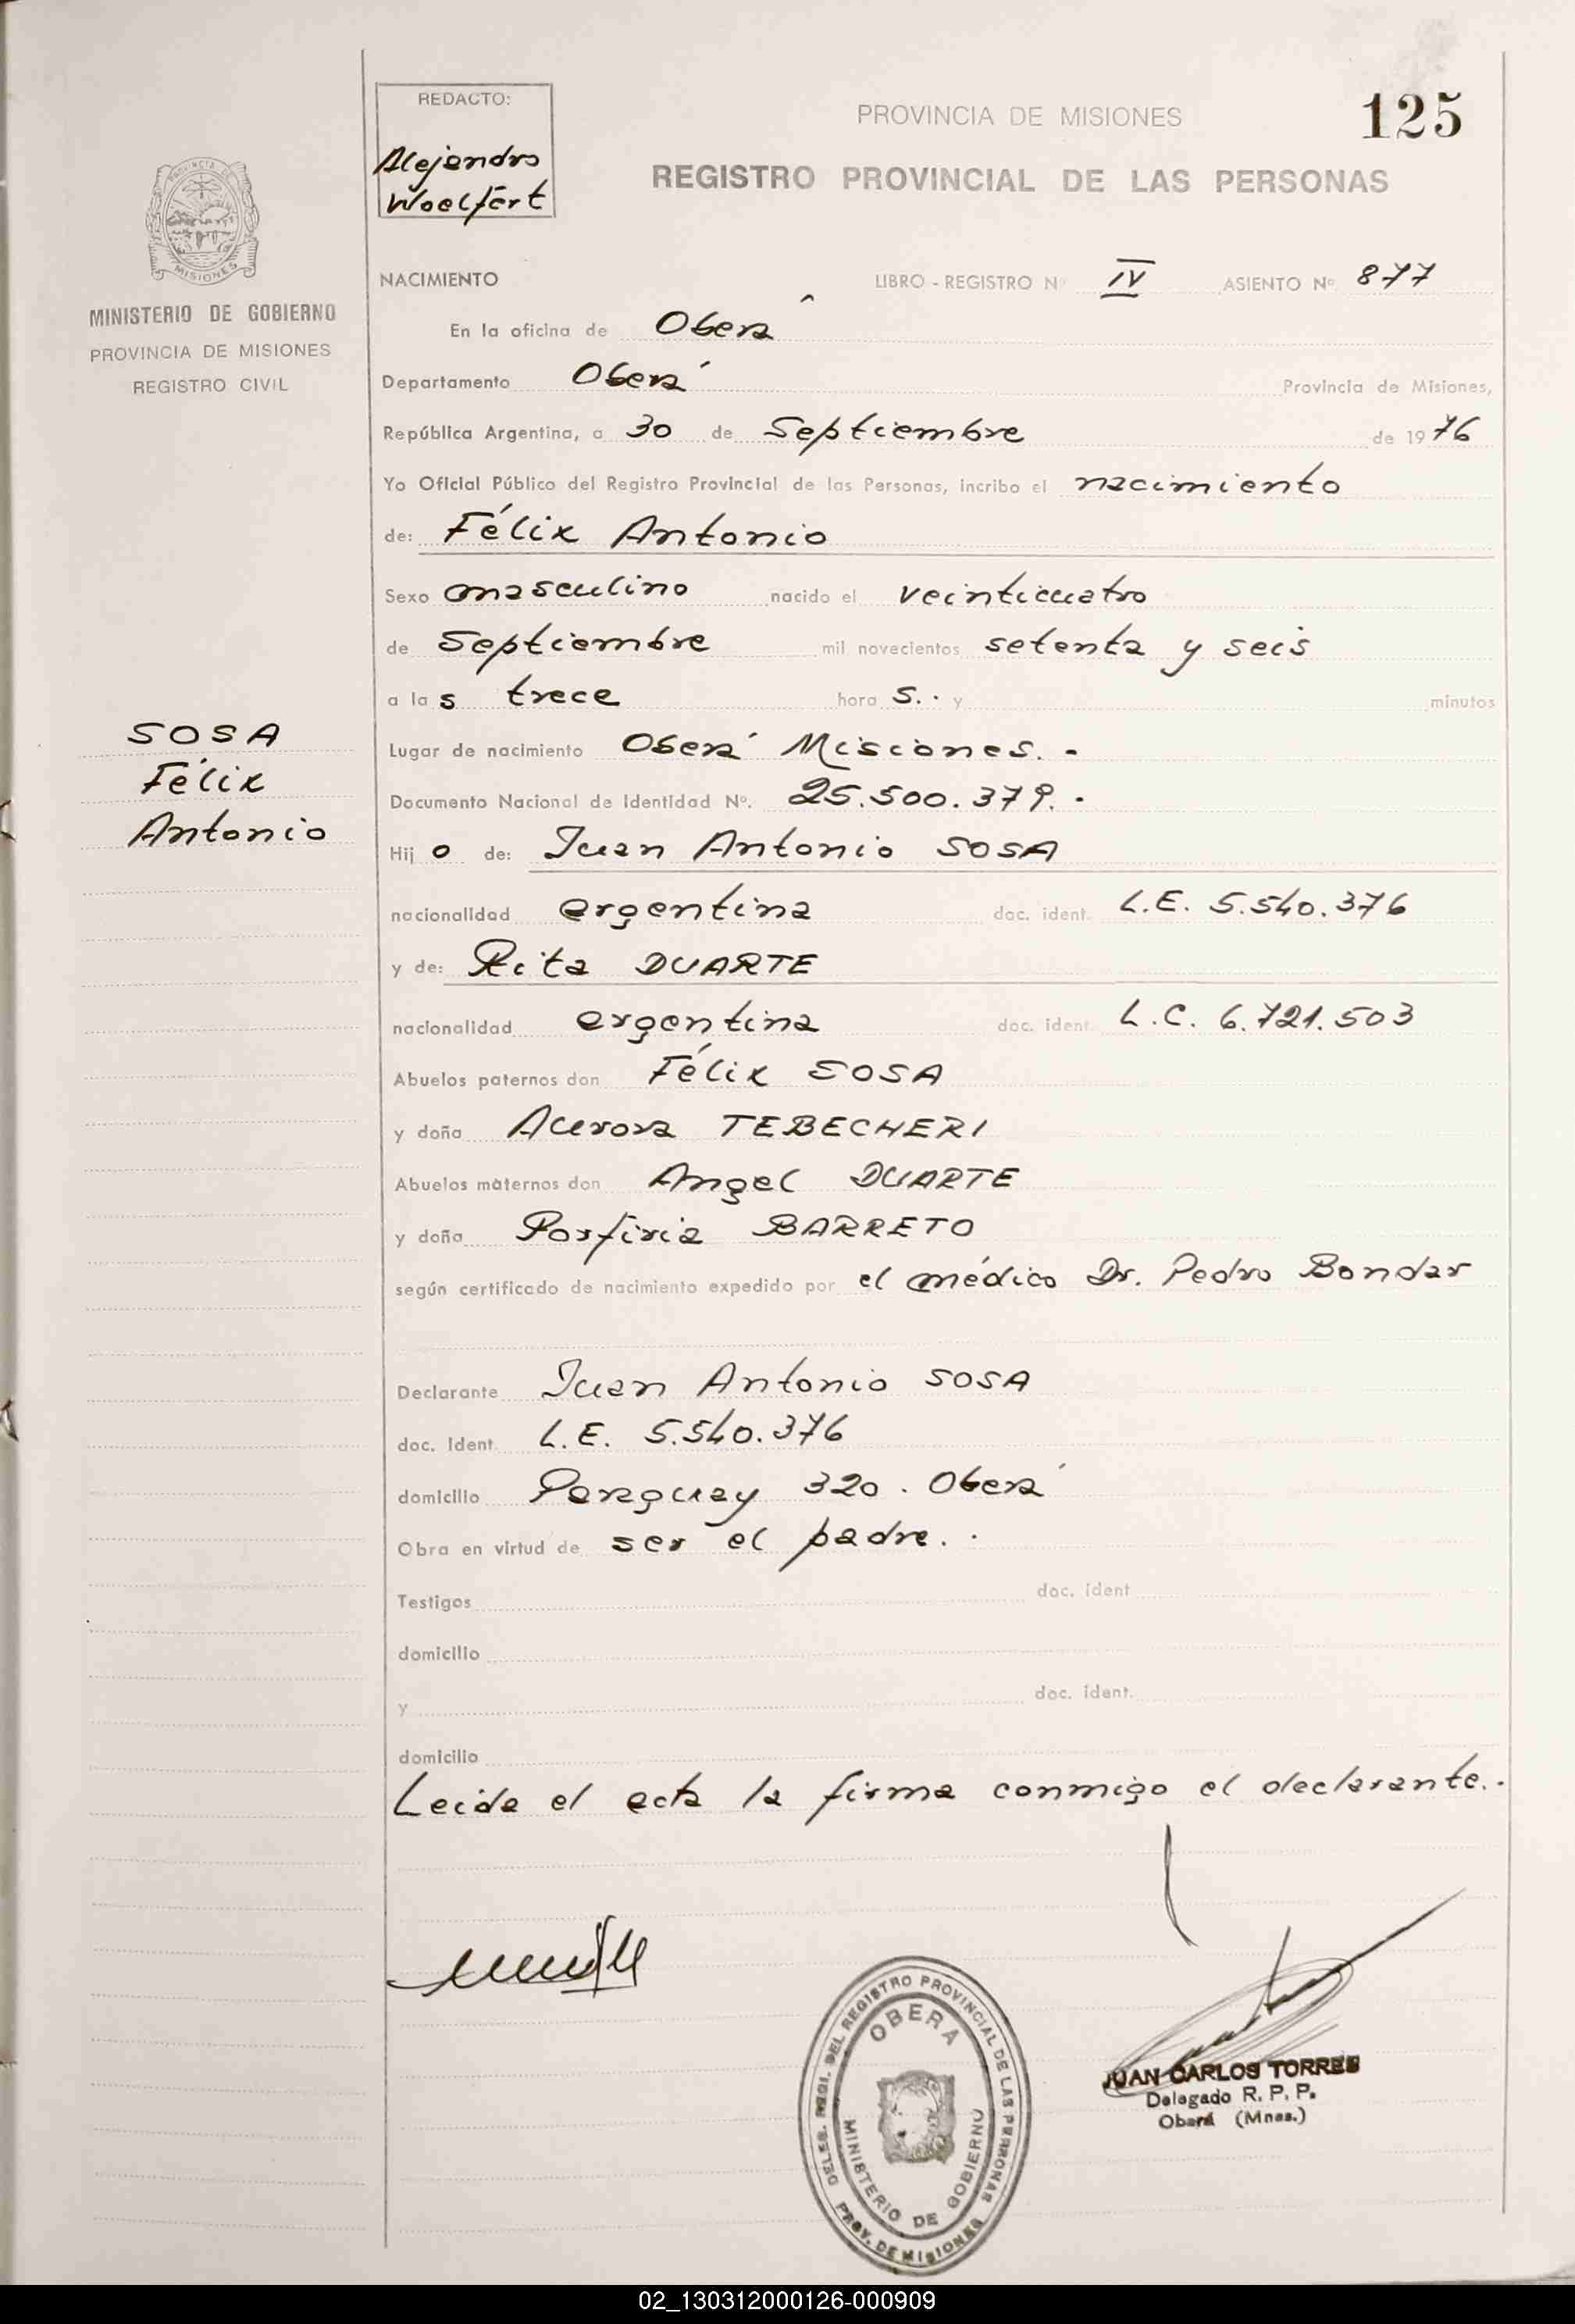 REDACTO:
Alejandro
Woelfert
PROVINCIA DE MISIONES
125
REGISTRO PROVINCIAL DE LAS PERSONAS
MINISTERIO DE GOBIERNO
PROVINCIA DE MISIONES
REGISTRO CIVIL
NACIMIENTO LIBRO - REGISTRO Nº IV ASIENTO Nº 877
En la oficina de Oberá
Departamento Oberá Provincia de Misiones,
República Argentina, a 30 de Septiembre de 1976
Yo Oficial Público del Registro Provincial de las Personas, incribo el nacimiento
de: Félix Antonio
Sexo masculino nacido el veinticuatro
de Septiembre mil novecientos setenta y seis
a las trece horas.. y minutos
SOSA
Félix
Antonio
Lugar de nacimiento Oberá Misiones.-
Documento Nacional de Identidad Nº. 25.500.379.-
Hijo de: Juan Antonio SOSA
nacionalidad argentina doc. ident. L.E. 5.540.376
y de: Rita DUARTE
nacionalidad argentina doc. ident. L.C. 6.721.503
Abuelos paternos don Félix SOSA
y doña Aurora TEBECHERI
Abuelos maternos don Angel DUARTE
y doña Porfiria BARRETO
según certificado de nacimiento expedido por el médico Dr. Pedro Bondar
Declarante Juan Antonio SOSA
doc. Ident. L.E. 5.540.376
domicilio Paraguay 320. Oberá
Obra en virtud de ser el padre..
Testigos doc. ident
domicilio
y doc. ident.
domicilio
Leida el acta la firma conmigo el declarante..
DELEG. REGI. DEL REGISTRO PROVINCIAL DE LAS PERSONAS
OBERA
MINISTERIO DE GOBIERNO
PROV. DE MISIONES
JUAN CARLOS TORRES
Delegado R. P. P.
Oberá (Mnes.)
02_130312000126-000909